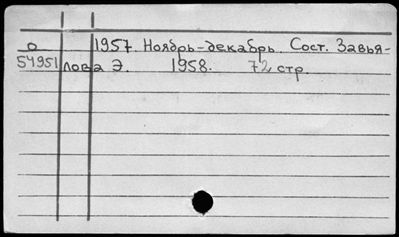 О 1957. Ноябрь-декабрь. Сост. Завья-
54951 лова Э. 1958. 72 стр.